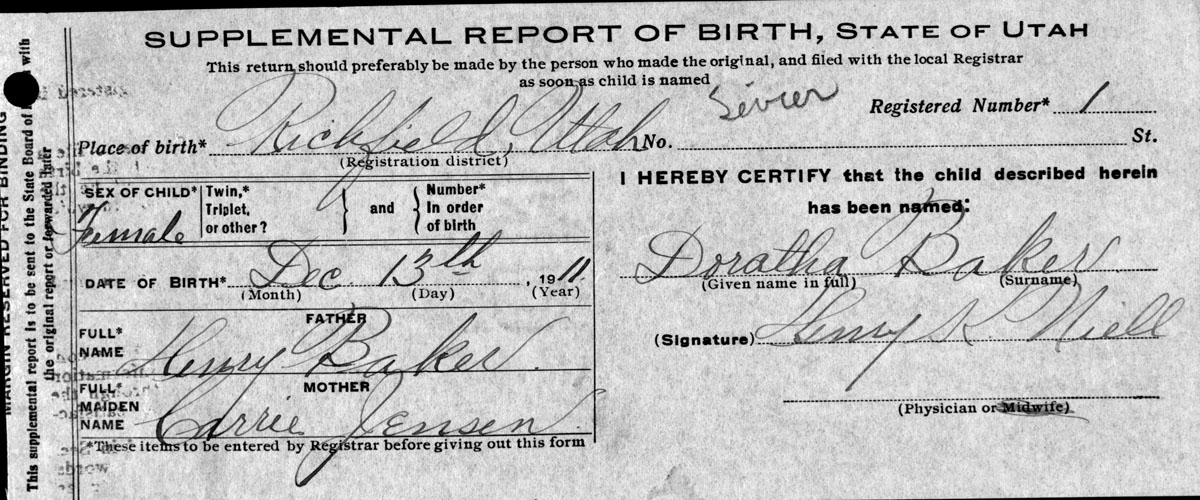 SUPPLEMENTAL REPORT OF BIRTH, STATE OF UTAH
This return should preferably be made by the person who made the original, and filed with the local Registrar
as soon as child is named
Sevier
Registered Number* 1
Place of birth* Richfield, Utah No. St.
(Registration district)
SEX OF CHILD* Female
Twin,* Triplet, or other?
and
Number* In order of birth
DATE OF BIRTH* Dec 13th, 1911
(Month) (Day) (Year)
FATHER
FULL* NAME Henry Baker
MOTHER
FULL* MAIDEN NAME Carrie Jensen
*These items to be entered by Registrar before giving out this form
I HEREBY CERTIFY that the child described herein
has been named:
Doratha Baker
(Given name in full) (Surname)
(Signature) Henry K Niell
(Physician or Midwife)
MARGIN RESERVED FOR BINDING
This supplemental report is to be sent to the State Board of with
the original report or forwarded later